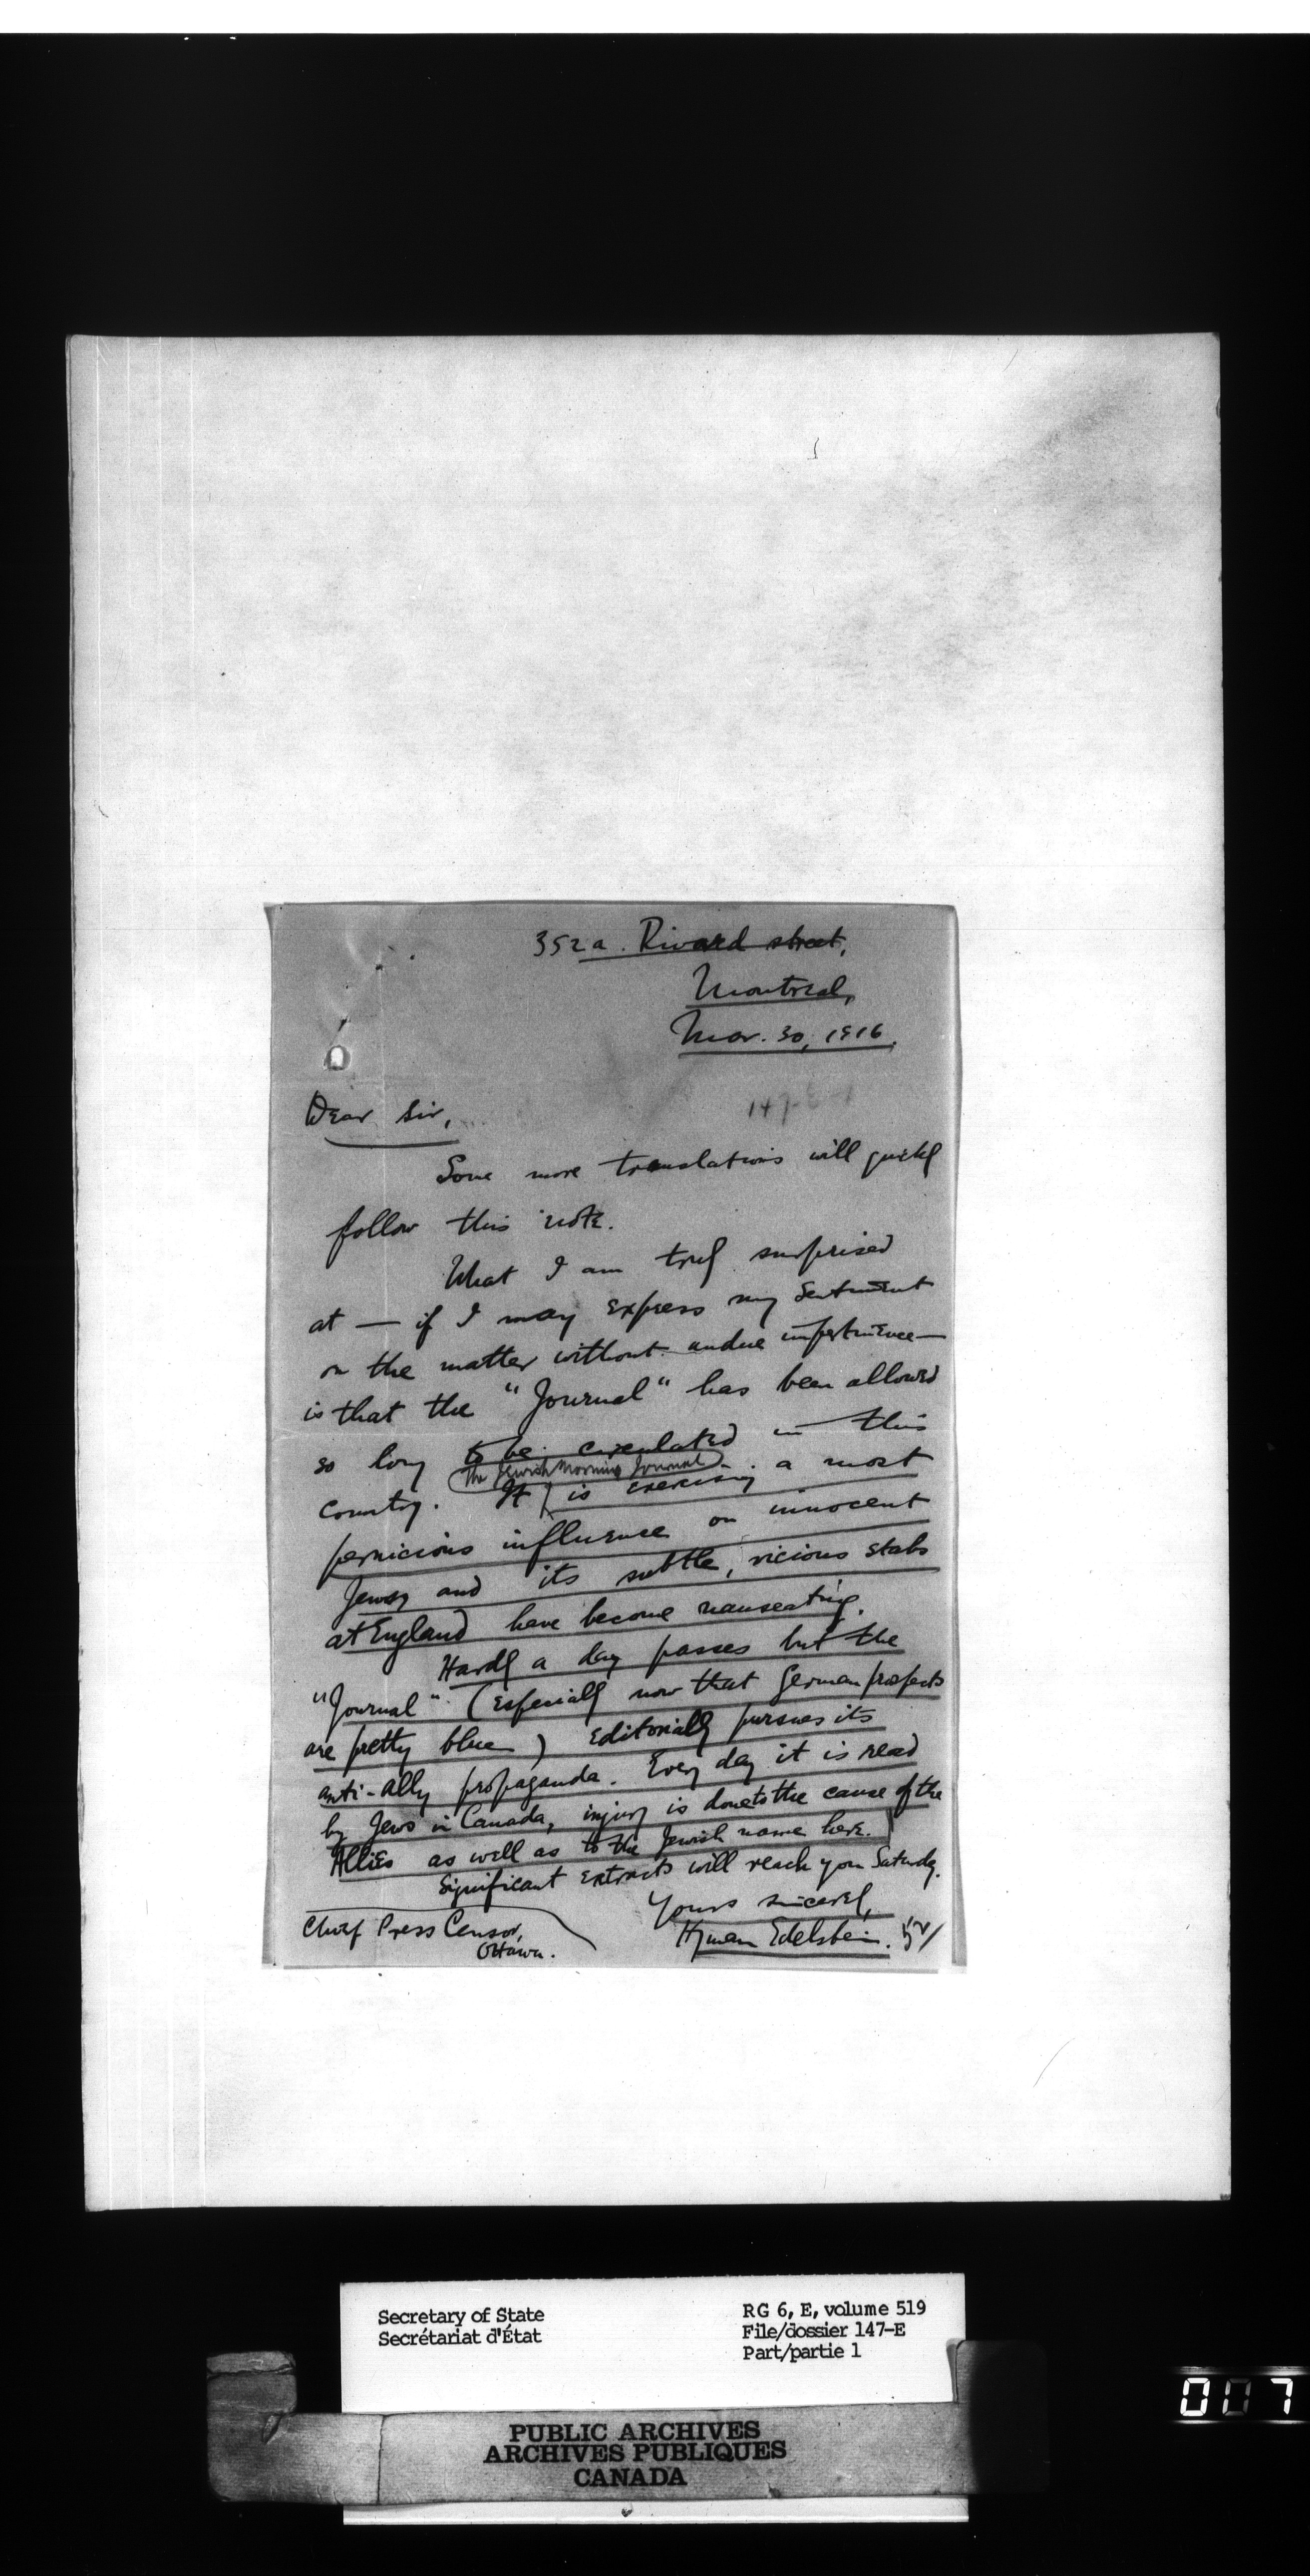 352a. Rivard street,
Montreal,
Mar. 30, 1916.
147-E-1
Dear Sir,
Some more translations will quickly
follow this note.
What I am truly surprised
at — if I may express my sentiment
on the matter without undue impertinence —
is that the "Journal" has been allowed
so long to be circulated in this
(The Jewish Morning Journal)
country. It is exercising a most
pernicious influence on innocent
Jewry and its subtle, vicious stabs
at England have become nauseating.
Hardly a day passes but the
"Journal" (especially now that German prospects
are pretty blue) editorially pursues its
anti-ally propaganda. Every day it is read
by Jews in Canada, injury is done to the cause of the
Allies as well as to the Jewish name here.
Significant extracts will reach you Saturday.
Yours sincerely,
Hyman Edelstein.
Chief Press Censor,
Ottawa.
Secretary of State
Secrétariat d'État
RG 6, E, volume 519
File/dossier 147-E
Part/partie 1
PUBLIC ARCHIVES
ARCHIVES PUBLIQUES
CANADA
007